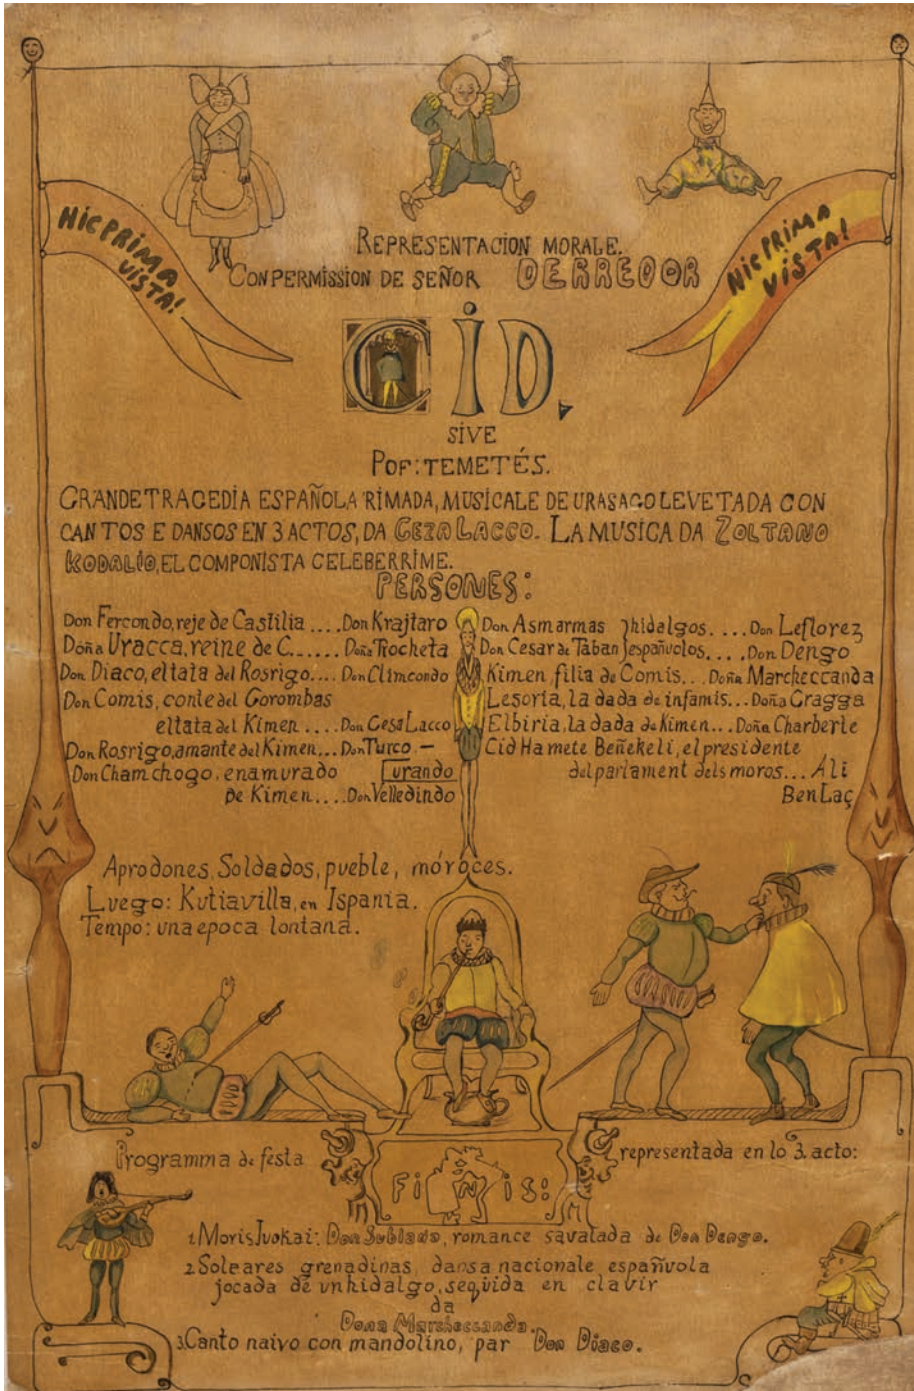 NIC PRIMA
VISTA!
NIC PRIMA
VISTA!
REPRESENTACION MORALE.
CON PERMISSION DE SEÑOR DERREDOR
CID,
SIVE
POF: TEMETÉS.
GRANDE TRAGEDIA ESPAÑOLA RIMADA, MUSICALE DE URASAGO LEVETADA CON
CANTOS E DANSOS EN 3 ACTOS, DA GEZA LACCO. LA MUSICA DA ZOLTANO
KODALIO, EL COMPONISTA CELEBERRIME.
PERSONES:
Don Fercondo, reje de Castilia .... Don Krajtaro
Doña Uracca, reine de C....... Doña Trocheta
Don Diaco, eltata del Rosrigo.... Don Climcondo
Don Comis, conte del Gorombas
eltata del Kimen .... Don Gesa Lacco
Don Rosrigo, amante del Kimen... Don Turco.—
Don Chamchogo, enamurado Turando
de Kimen.... Don Velledindo
Don Asmarmas }hidalgos.... Don Leflorez
Don Cesar de Taban }españuolos.... Don Dengo
Kimen filia de Comis... Doña Marcheccanda
Lesoria, la dada de infamis... Doña Gragga
Elbiria, la dada de Kimen... Doña Charberle
Cid Hamete Beñekeli, el presidente
del parlament dels moros... Ali
Ben Laç
Aprodones, Soldados, pueble, móroces.
Luego: Kutiavilla, en Ispania.
Tempo: una epoca lontana.
Programma de festa representada en lo 3. acto:
FINIS:
1. Moris Juokai: Don Soblado, romance savalada de Don Dengo.
2 Soleares grenadinas, dansa nacionale españuola
jocada de un hidalgo, seqüida en clavir
da
Dona Marcheccanda.
3. Canto naivo con mandolino, par Don Diaco.